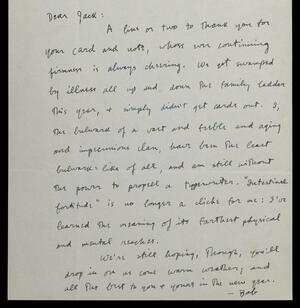 Dear Jack:
A line or two to thank you for
your card and note, whose ever continuing
firmness is always cheering. We got swamped
by illness all up and down the family ladder
this year, & simply didn't get cards out. I,
the bulwark of a vast and feeble and aging
and impecunious clan, have been the least
bulwark-like of all, and am still without
the power to propel a typewriter. "Intestinal
fortitude" is no longer a cliché for me: I've
learned the meaning of its farthest physical
and mental reaches.
We're still hoping, though, you'll
drop in on us come warm weather; and
all the best to you & yours in the new year.
— Bob